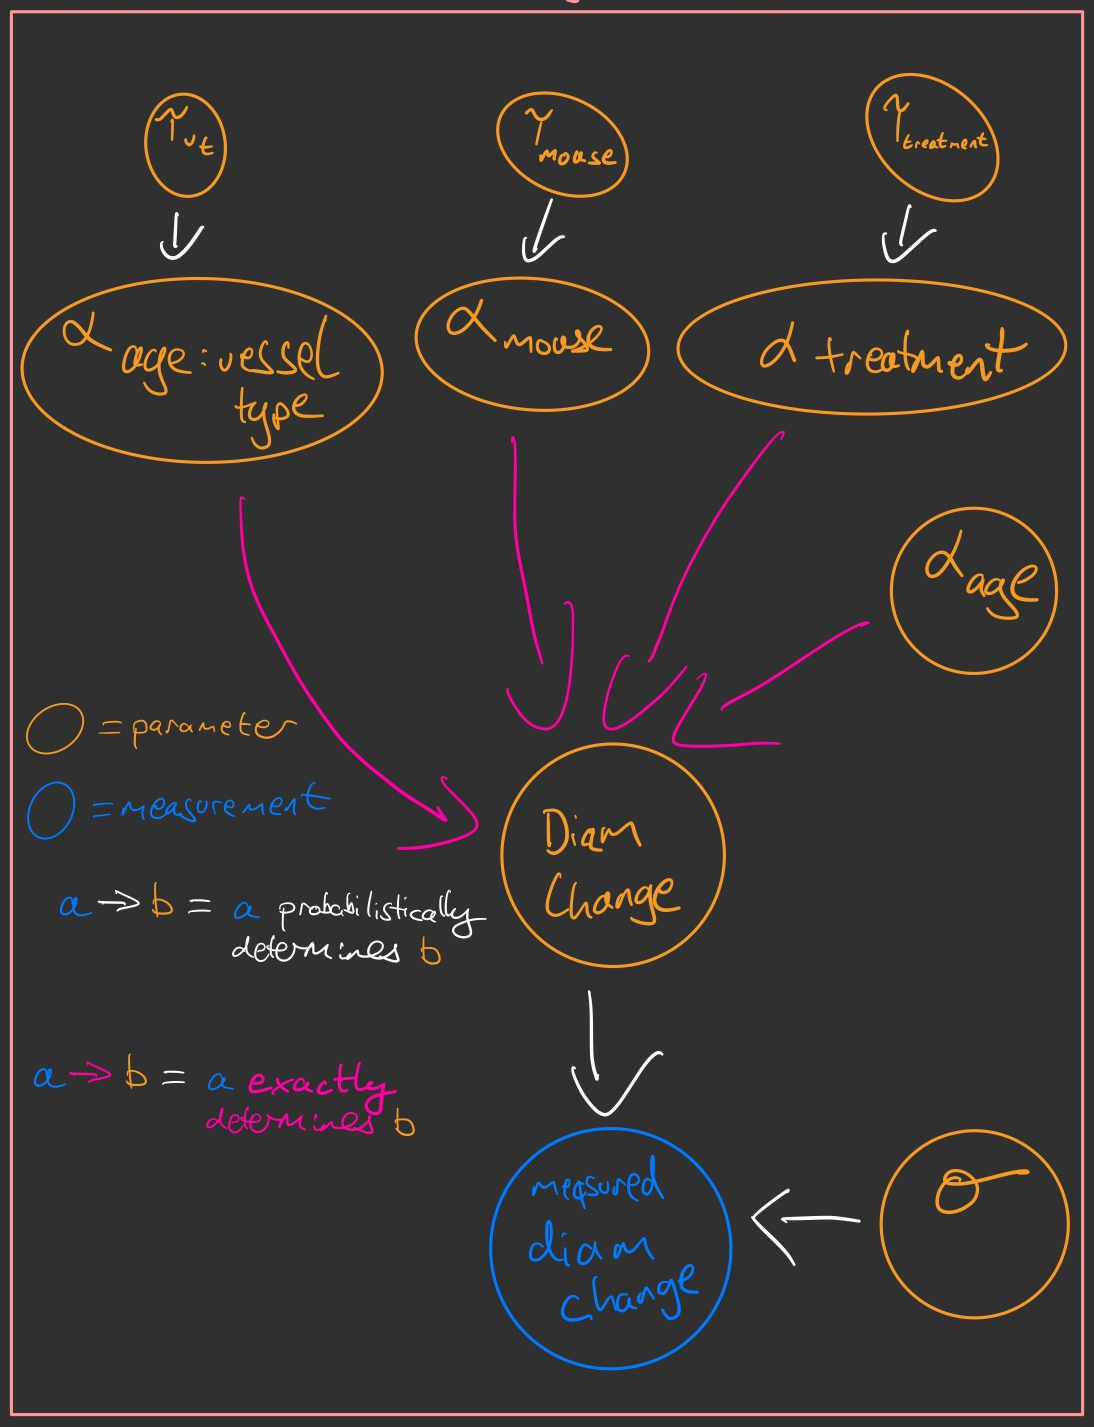 τ vt
τ mouse
τ treatment
α age:vessel
type
α mouse
α treatment
α age
= parameter
= measurement
a → b = a probabilistically
determines b
a → b = a exactly
determines b
Diam
Change
measured
diam
change
σ